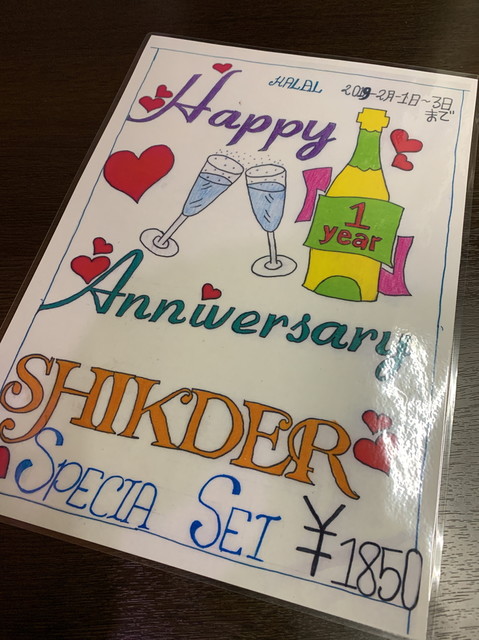 HALAL 2019-2月-1日~3日
まで
Happy
1
year
Anniversary
SHIKDER
SPECIA SET ¥1850